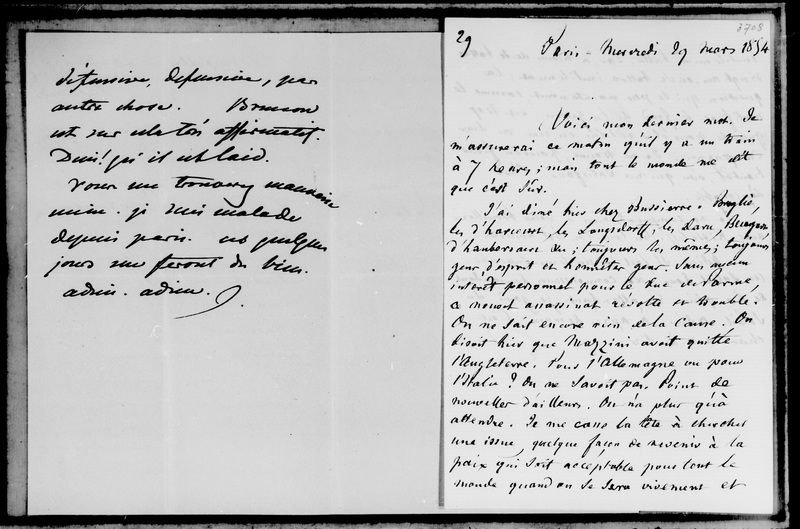 défensive, defensive, par
autre chose. Brunnow
est sur cela très affirmatif.
Dieu! qu'il est laid.
Vous me trouverez mauvaise
mine. je suis malade
depuis paris. ces quelques
jours me feront du bien.
adieu. adieu.
3708
29 Paris - Mercredi 29 mars 1854
Voici mon dernier mot. Je
m'assurerai ce matin qu'il y a un train
à 7 heures ; mais tout le monde me dit
que c'est sûr.
J'ai dîné hier chez Bussierre. Broglie,
les d'Harcourt, les Langsdorff, les Daru,
d'haubersaert &c ; toujours les mêmes ; toujours
gens d'esprit et honnêtes gens. Sans aucun
intérêt personnel pour le Duc de Parme,
ce nouvel assassinat révolte et trouble.
On ne sait encore rien de la cause. On
disoit hier que Mazzini avoit quitté
l'Angleterre. Pour l'Allemagne ou pour
l'Italie ? On ne savoit pas. Point de
nouvelles d'ailleurs. On n'a plus qu'à
attendre. Je me casse la tête à chercher
une issue, quelque façon de revenir à la
paix qui soit acceptable pour tout le
monde quand on se sera vivement et